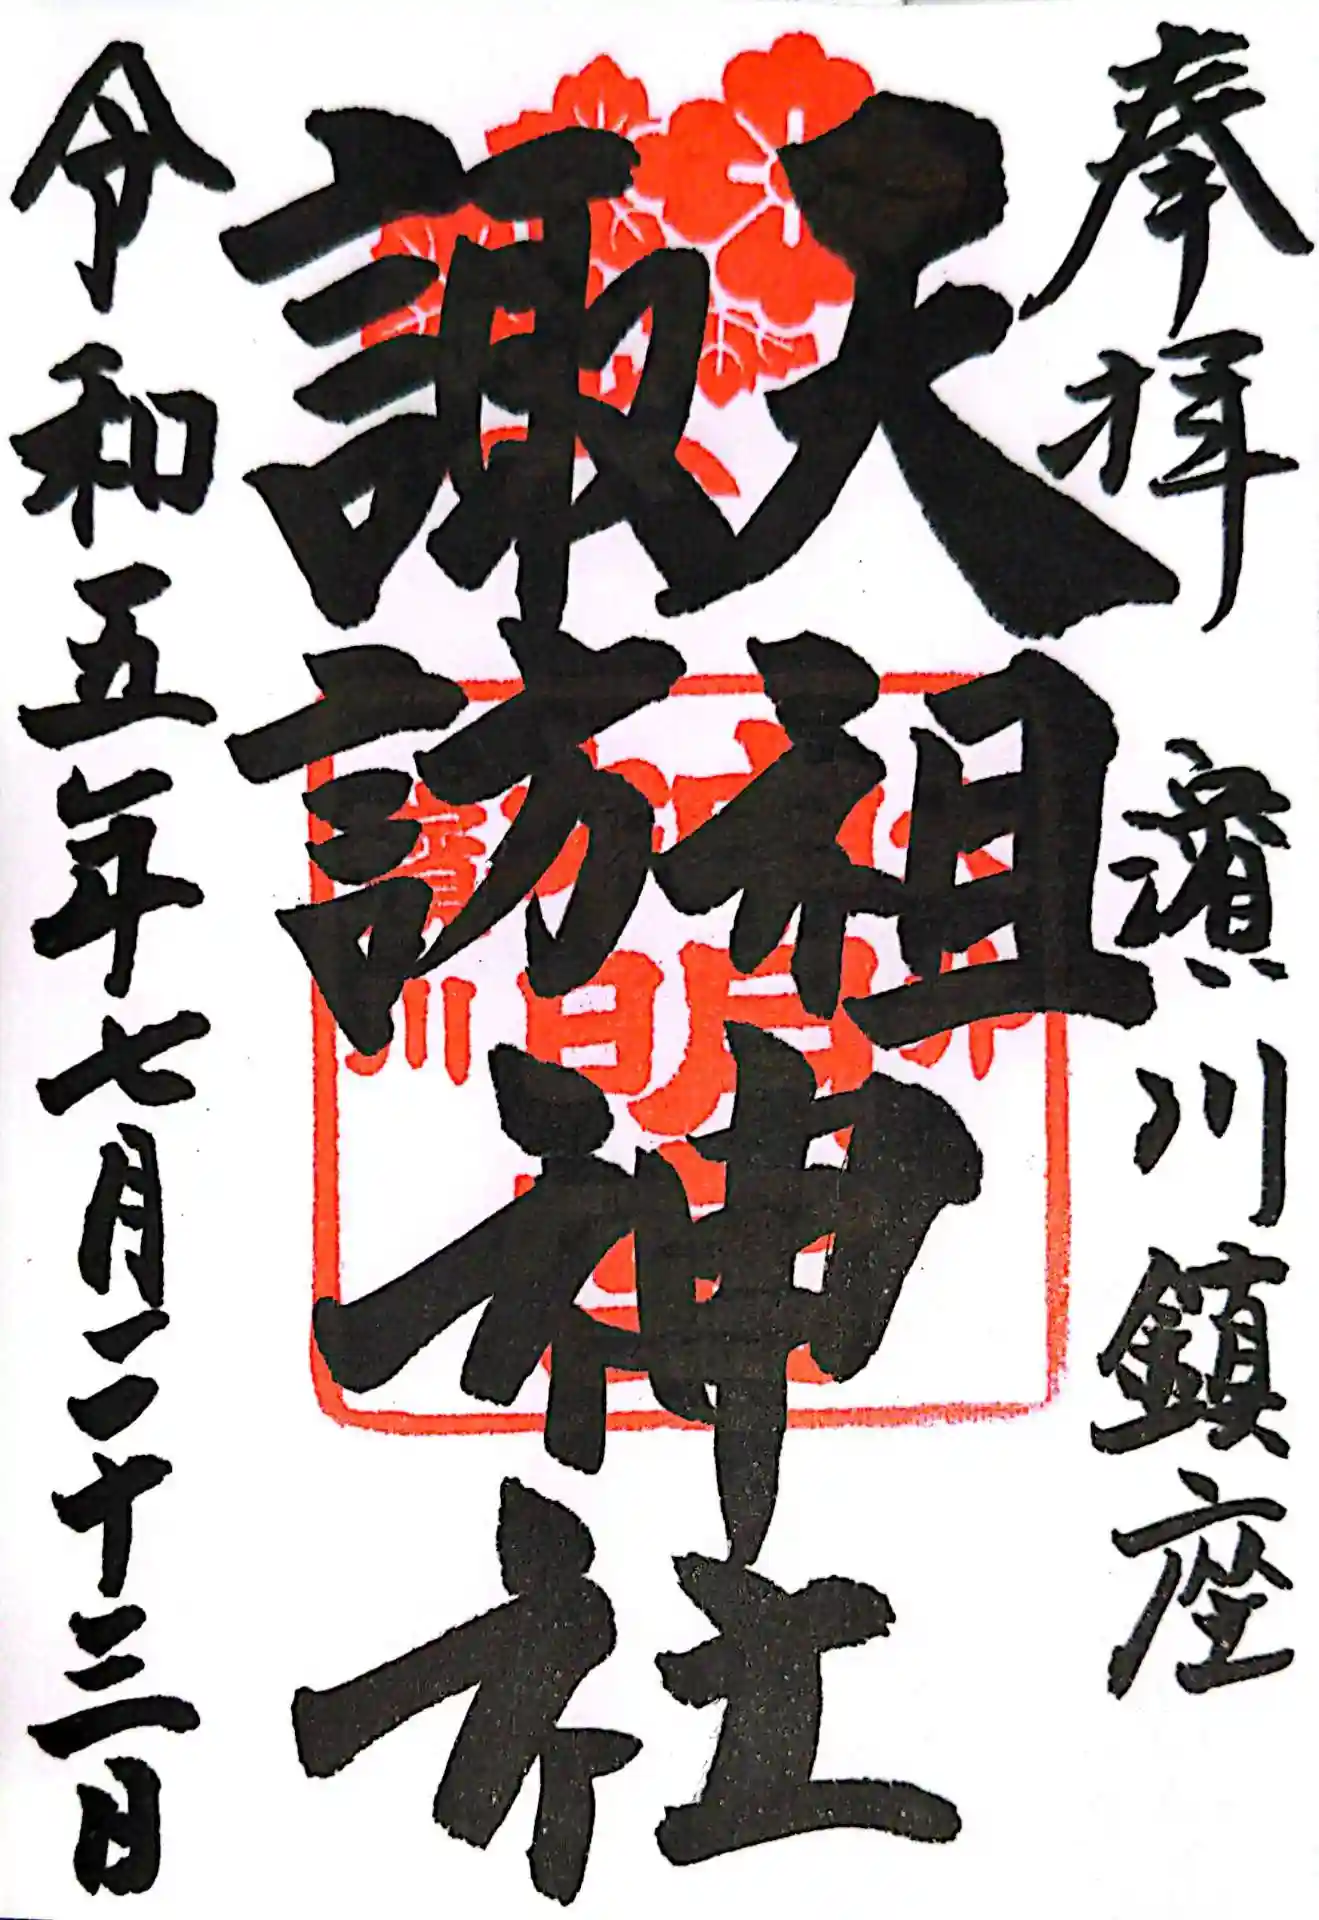 奉拝 濱川鎮座
天祖
諏訪
神社
令和五年七月二十三日